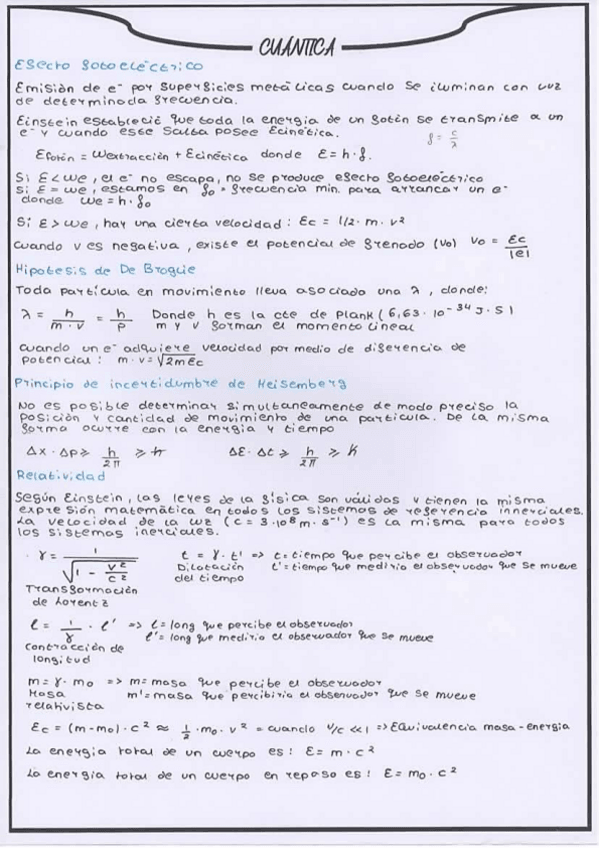 CUÁNTICA
Efecto fotoeléctrico
Emisión de e⁻ por superficies metálicas cuando se iluminan con luz
de determinada frecuencia.
Einstein estableció que toda la energía de un fotón se transmite a un
e⁻ y cuando este salta posee Ecinética.
f = c/λ
Efotón = Wextracción + Ecinética donde E = h · f.
Si E < We, el e⁻ no escapa, no se produce efecto fotoeléctrico
Si E = We, estamos en f₀ = frecuencia min. para arrancar un e⁻
donde We = h · f₀
Si E > We, hay una cierta velocidad : Ec = 1/2 · m · v²
Cuando v es negativa, existe el potencial de frenado (V₀) V₀ = Ec/|e|
Hipotesis de De Broglie
Toda partícula en movimiento lleva asociado una λ, donde:
λ = h/(m · v) = h/p Donde h es la cte de Plank (6,63 · 10⁻³⁴ J · s)
m y v forman el momento lineal
Cuando un e⁻ adquiere velocidad por medio de diferencia de
potencial : m · v = √(2mEc)
Principio de incertidumbre de Heisemberg
No es posible determinar simultaneamente de modo preciso la
posición y cantidad de movimiento de una partícula. De la misma
forma ocurre con la energía y tiempo
Δx · Δp ≥ h/2π ≥ ħ ΔE · Δt ≥ h/2π ≥ ħ
Relatividad
Según Einstein, las leyes de la física son válidas y tienen la misma
expresión matemática en todos los sistemas de referencia innerciales.
La velocidad de la luz (c = 3 · 10⁸ m · s⁻¹) es la misma para todos
los sistemas inerciales.
· γ = 1/√(1 - v²/c²) t = γ · t' => t = tiempo que percibe el observador
Dilatación t' = tiempo que mediría el observador que se mueve
del tiempo
Transformación
de Lorentz
l = 1/γ · l' => l = long que percibe el observador
l' = long que mediría el observador que se mueve
Contracción de
longitud
m = γ · m₀ => m = masa que percibe el observador
Masa m' = masa que percibiría el observador que se mueve
relativista
Ec = (m - m₀) · c² ≈ 1/2 · m₀ · v² = cuando v/c << 1 => Equivalencia masa - energía
La energía total de un cuerpo es : E = m · c²
La energía total de un cuerpo en reposo es : E = m₀ · c²